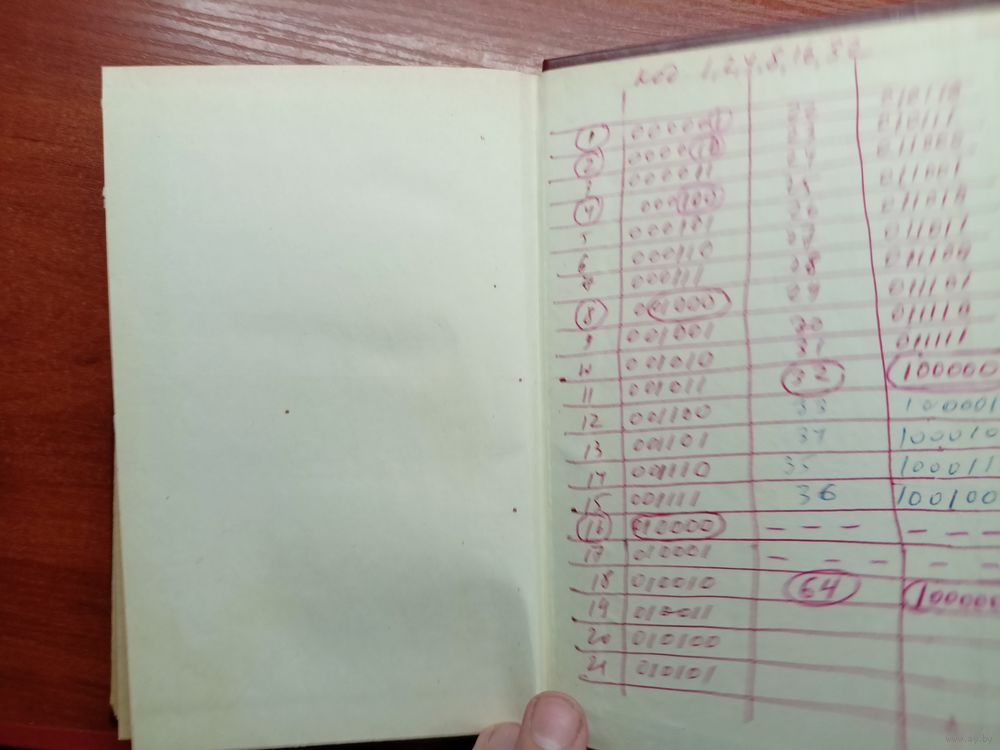 код 1,2,4,8,16,32
1 000001 22 010110
2 000010 23 010111
3 000011 24 011000
4 000100 25 011001
5 000101 26 011010
6 000110 27 011011
7 000111 28 011100
8 001000 29 011101
9 001001 30 011110
10 001010 31 011111
11 001011 32 100000
12 001100 33 100001
13 001101 34 100010
14 001110 35 100011
15 001111 36 100100
16 010000 – – – – – –
17 010001 – – – – – –
18 010010 64 100000
19 010011
20 010100
21 010101
www.ay.by